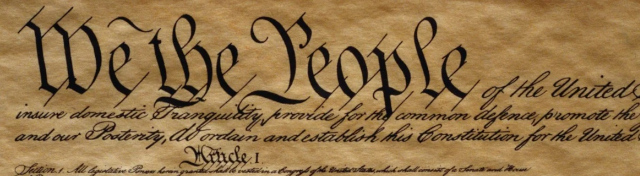 We the People of the United
insure domestic Tranquility, provide for the common defence, promote the
and our Posterity, do ordain and establish this Constitution for the United
Article. I.
Section. 1. All legislative Powers herein granted shall be vested in a Congress of the United States, which shall consist of a Senate and House